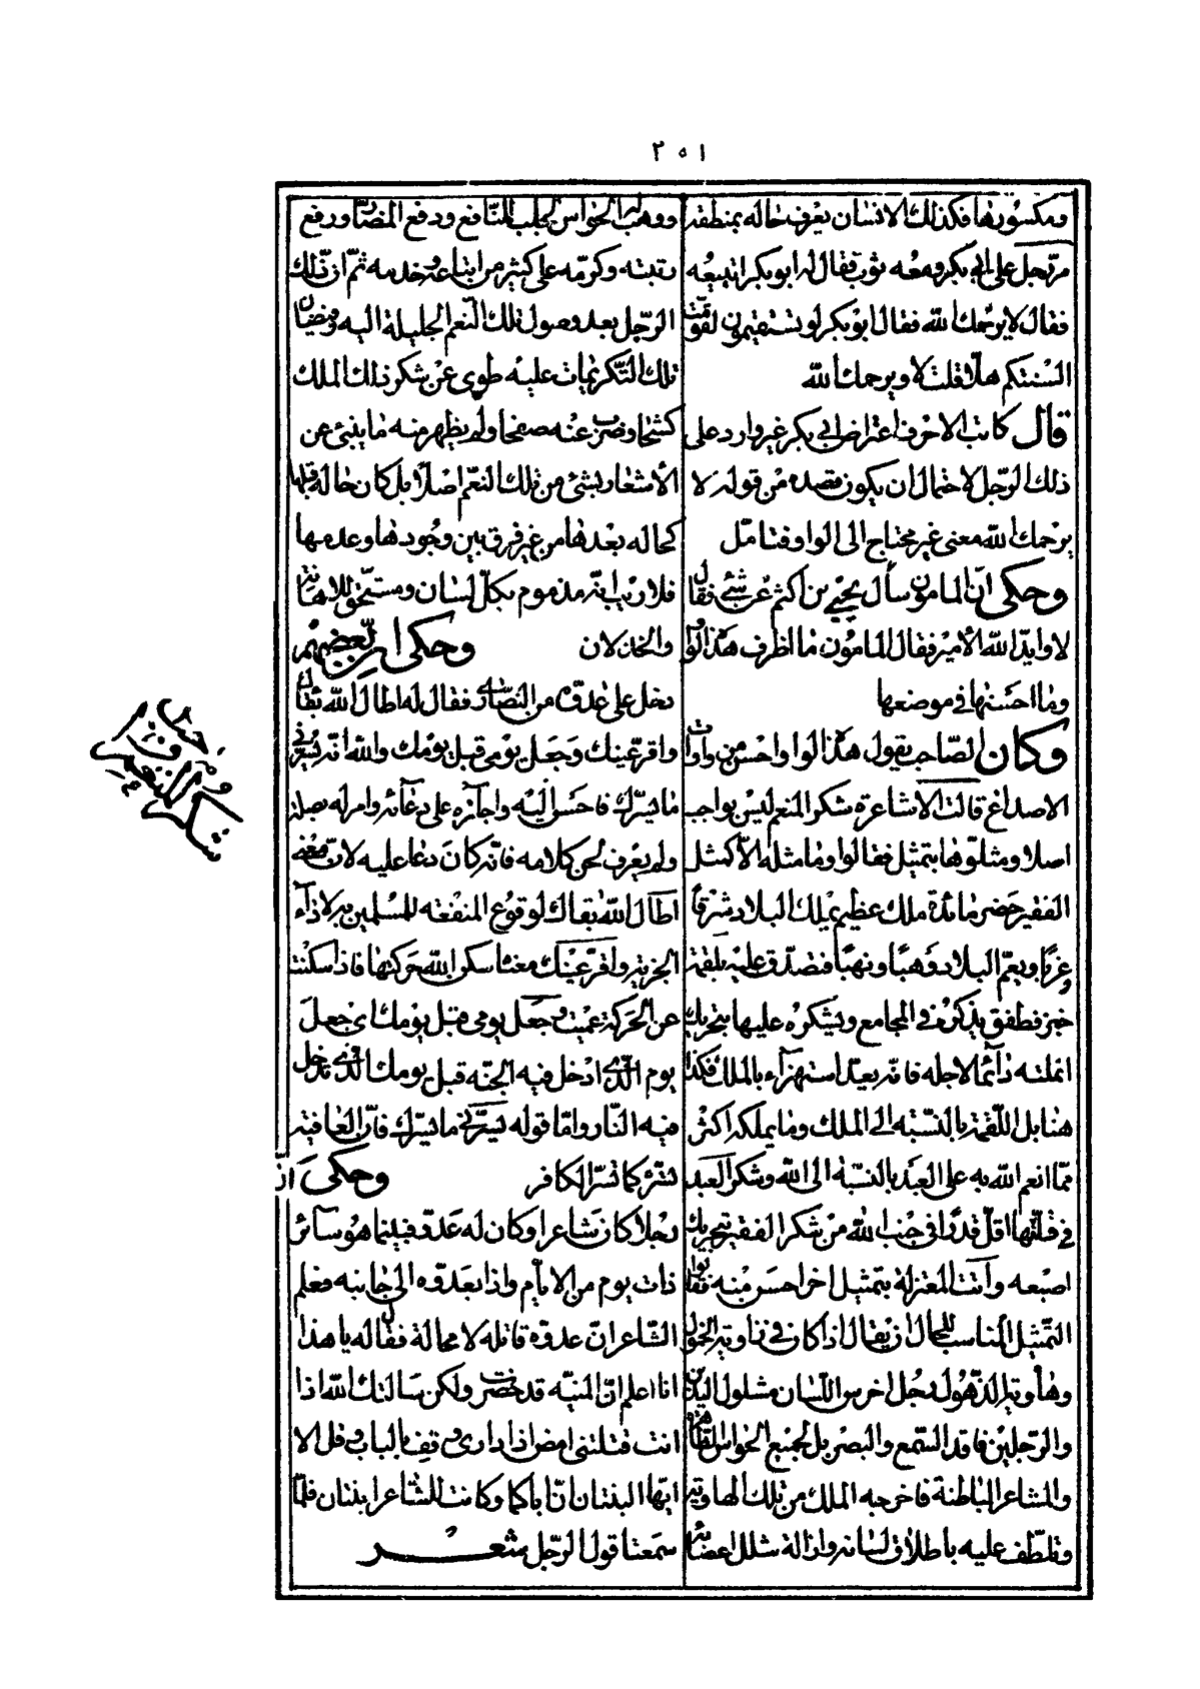 ٢٥١
ومكسورها فكذلك الانسان يعرف حاله بمنطقه
مر رجل على ابى بكر ومعه ثوب فقال له ابو بكر اتبيعه
فقال لا يرحمك الله فقال ابو بكر لو تستقيمون لقومت
السنتكم هلا قلت لا ويرحمك الله
قال كاتب الاحرف اعتراض ابى بكر غير وارد على
ذلك الرجل لاحتمال ان يكون قصده من قوله لا
يرحمك الله معنى غير محتاج الى الواو فتامل
وحكى ان المامون سأل يحيى بن اكثم عن شئ فقال
لا وايد الله الامير فقال المامون ما اظرف هذه الواو
وما احسنها فى موضعها
وكان الصاحب يقول هذه الواو احسن من واوات
الاصداغ قالت الاشاعرة شكر المنعم ليس بواجب
اصلا ومثلوها بتمثيل فقالوا وما مثله الا كمثل
الفقير حضر مائدة ملك عظيم يملك البلاد شرقا
وغربا ويعم البلاد وهبا ونهبا فتصدق عليه بلقمة
خبز فطفق يذكره فى المجامع ويشكره عليها بتحريك
انملته دائما لاجله فانه يعد استهزاء بالملك فكذا
هنا بل اللقمة بالنسبة الى الملك وما يملكه اكثر
مما انعم الله به على العبد بالنسبة الى الله وشكر العبد
فى قلتها اقل قدرا فى جنب الله من شكر الفقير بتحريك
اصبعه وأتت المعتزلة بتمثيل اخر احسن منه فقالوا
التمثيل المناسب للحال ان يقال اذا كان فى زاوية الخمول
وهاوية الذهول رجل اخرس اللسان مشلول اليدين
والرجلين فاقد السمع والبصر بل لجميع الحواس الظاهرة
والمشاعر الباطنة فاخرجه الملك من تلك الهاوية
وتلطف عليه باطلاق لسانه وازالة شلل اعضائه
ووهب له الحواس لجلب المنافع ودفع المضار ورفع
رتبته وكرمه على كثير من اتباعه وخدمه ثم ان ذلك
الرجل بعد وصول تلك النعم الجليلة اليه وفيضان
تلك التكريمات عليه طوى عن شكر ذلك الملك
كشحا وضرب عنه صفحا ولم يظهر منه ما ينبئ عن
الاشعار بشئ من تلك النعم اصلا بل كان حاله قبلها
كحاله بعدها من غير فرق بين وجودها وعدمها
فلا ريب انه مذموم بكل لسان ومستحق للاهانة
والخذلان وحكى ان بعضهم
دخل على عدوه من النصارى فقال له اطال الله بقاك
واقر عينك وجعل يومى قبل يومك والله انه ليسرنى
ما يسرك فاحسن اليه واجازه على دعائه وامر له بصلة
ولم يعرف لحن كلامه فانه كان دعا عليه لان معنى
اطال الله بقاك لوقوع المنفعة للمسلمين به لاداء
الجزية واقر عينك معناه سكن الله حركتها فاذا سكنت
عن الحركة عميت وجعل يومى قبل يومك اى جعل
يوم الذى ادخل فيه الجنة قبل يومك الذى تدخل
فيه النار واما قوله ليسرنى ما يسرك فان العافية
تسره كما تسر الكافر وحكى ان
رجلا كان شاعرا وكان له عدو فبينما هو سائر
ذات يوم من الايام واذا بعدوه الى جانبه فعلم
الشاعر ان عدوه قاتله لا محالة فقال له يا هذا
انا اعلم ان المنية قد حضرت ولكن سالتك الله اذا
انت قتلتنى امض اذا دارى وقف بالباب وقل الا
ايها البنتان ان اباكما وكانت للشاعر ابنتان فلما
سمعتا قول الرجل شعر
شكر المنعم